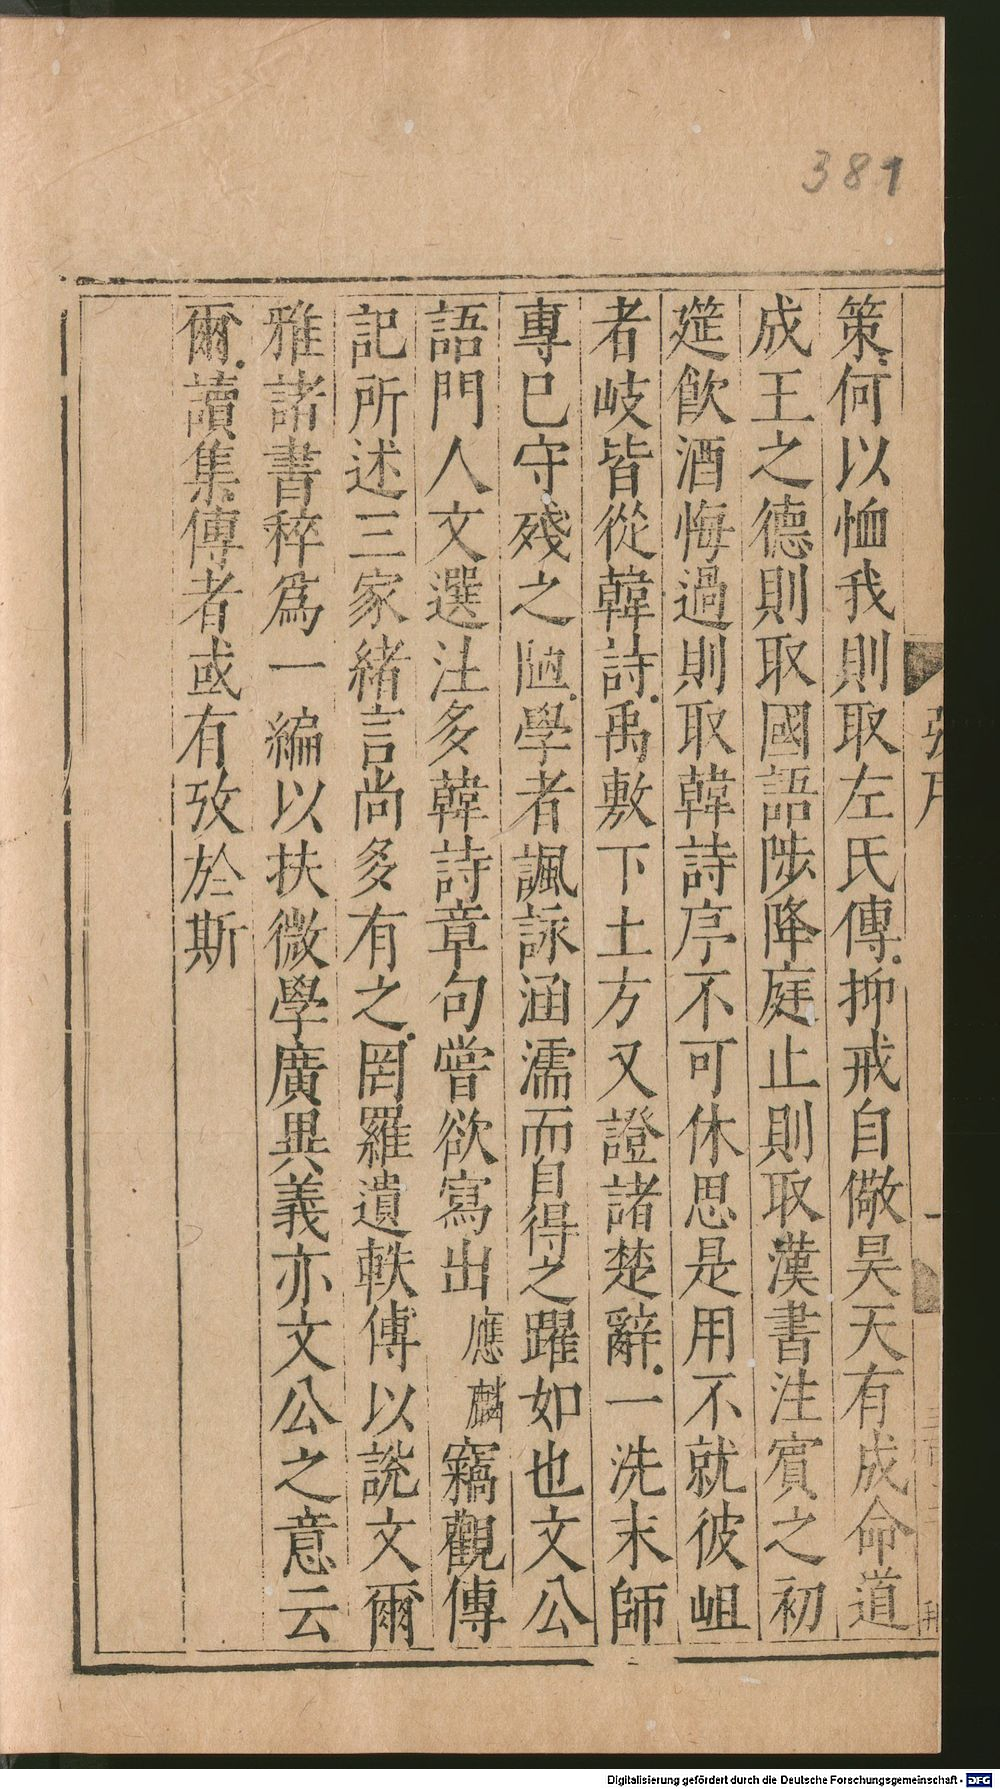 381
策何以恤我則取左氏傳抑戒自儆昊天有成命道
成王之德則取國語陟降庭止則取漢書注賓之初
筵飲酒悔過則取韓詩序不可休思是用不就彼岨
者岐皆從韓詩禹敷下土方又證諸楚辭一洗末師
專已守殘之陋學者諷詠涵濡而自得之躍如也文公
語門人文選注多韓詩章句嘗欲寫出應麟竊觀傳
記所述三家緒言尚多有之罔羅遺軼傅以說文爾
雅諸書稡爲一編以扶微學廣異義亦文公之意云
爾讀集傳者或有攷於斯
Digitalisierung gefördert durch die Deutsche Forschungsgemeinschaft - DFG